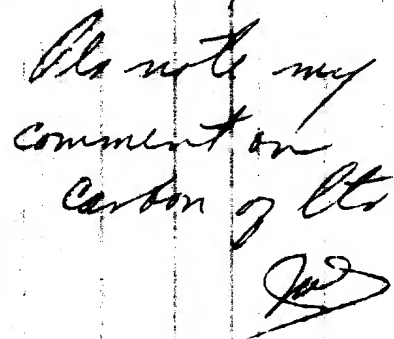 Pls note my
comment on
carbon of ltr